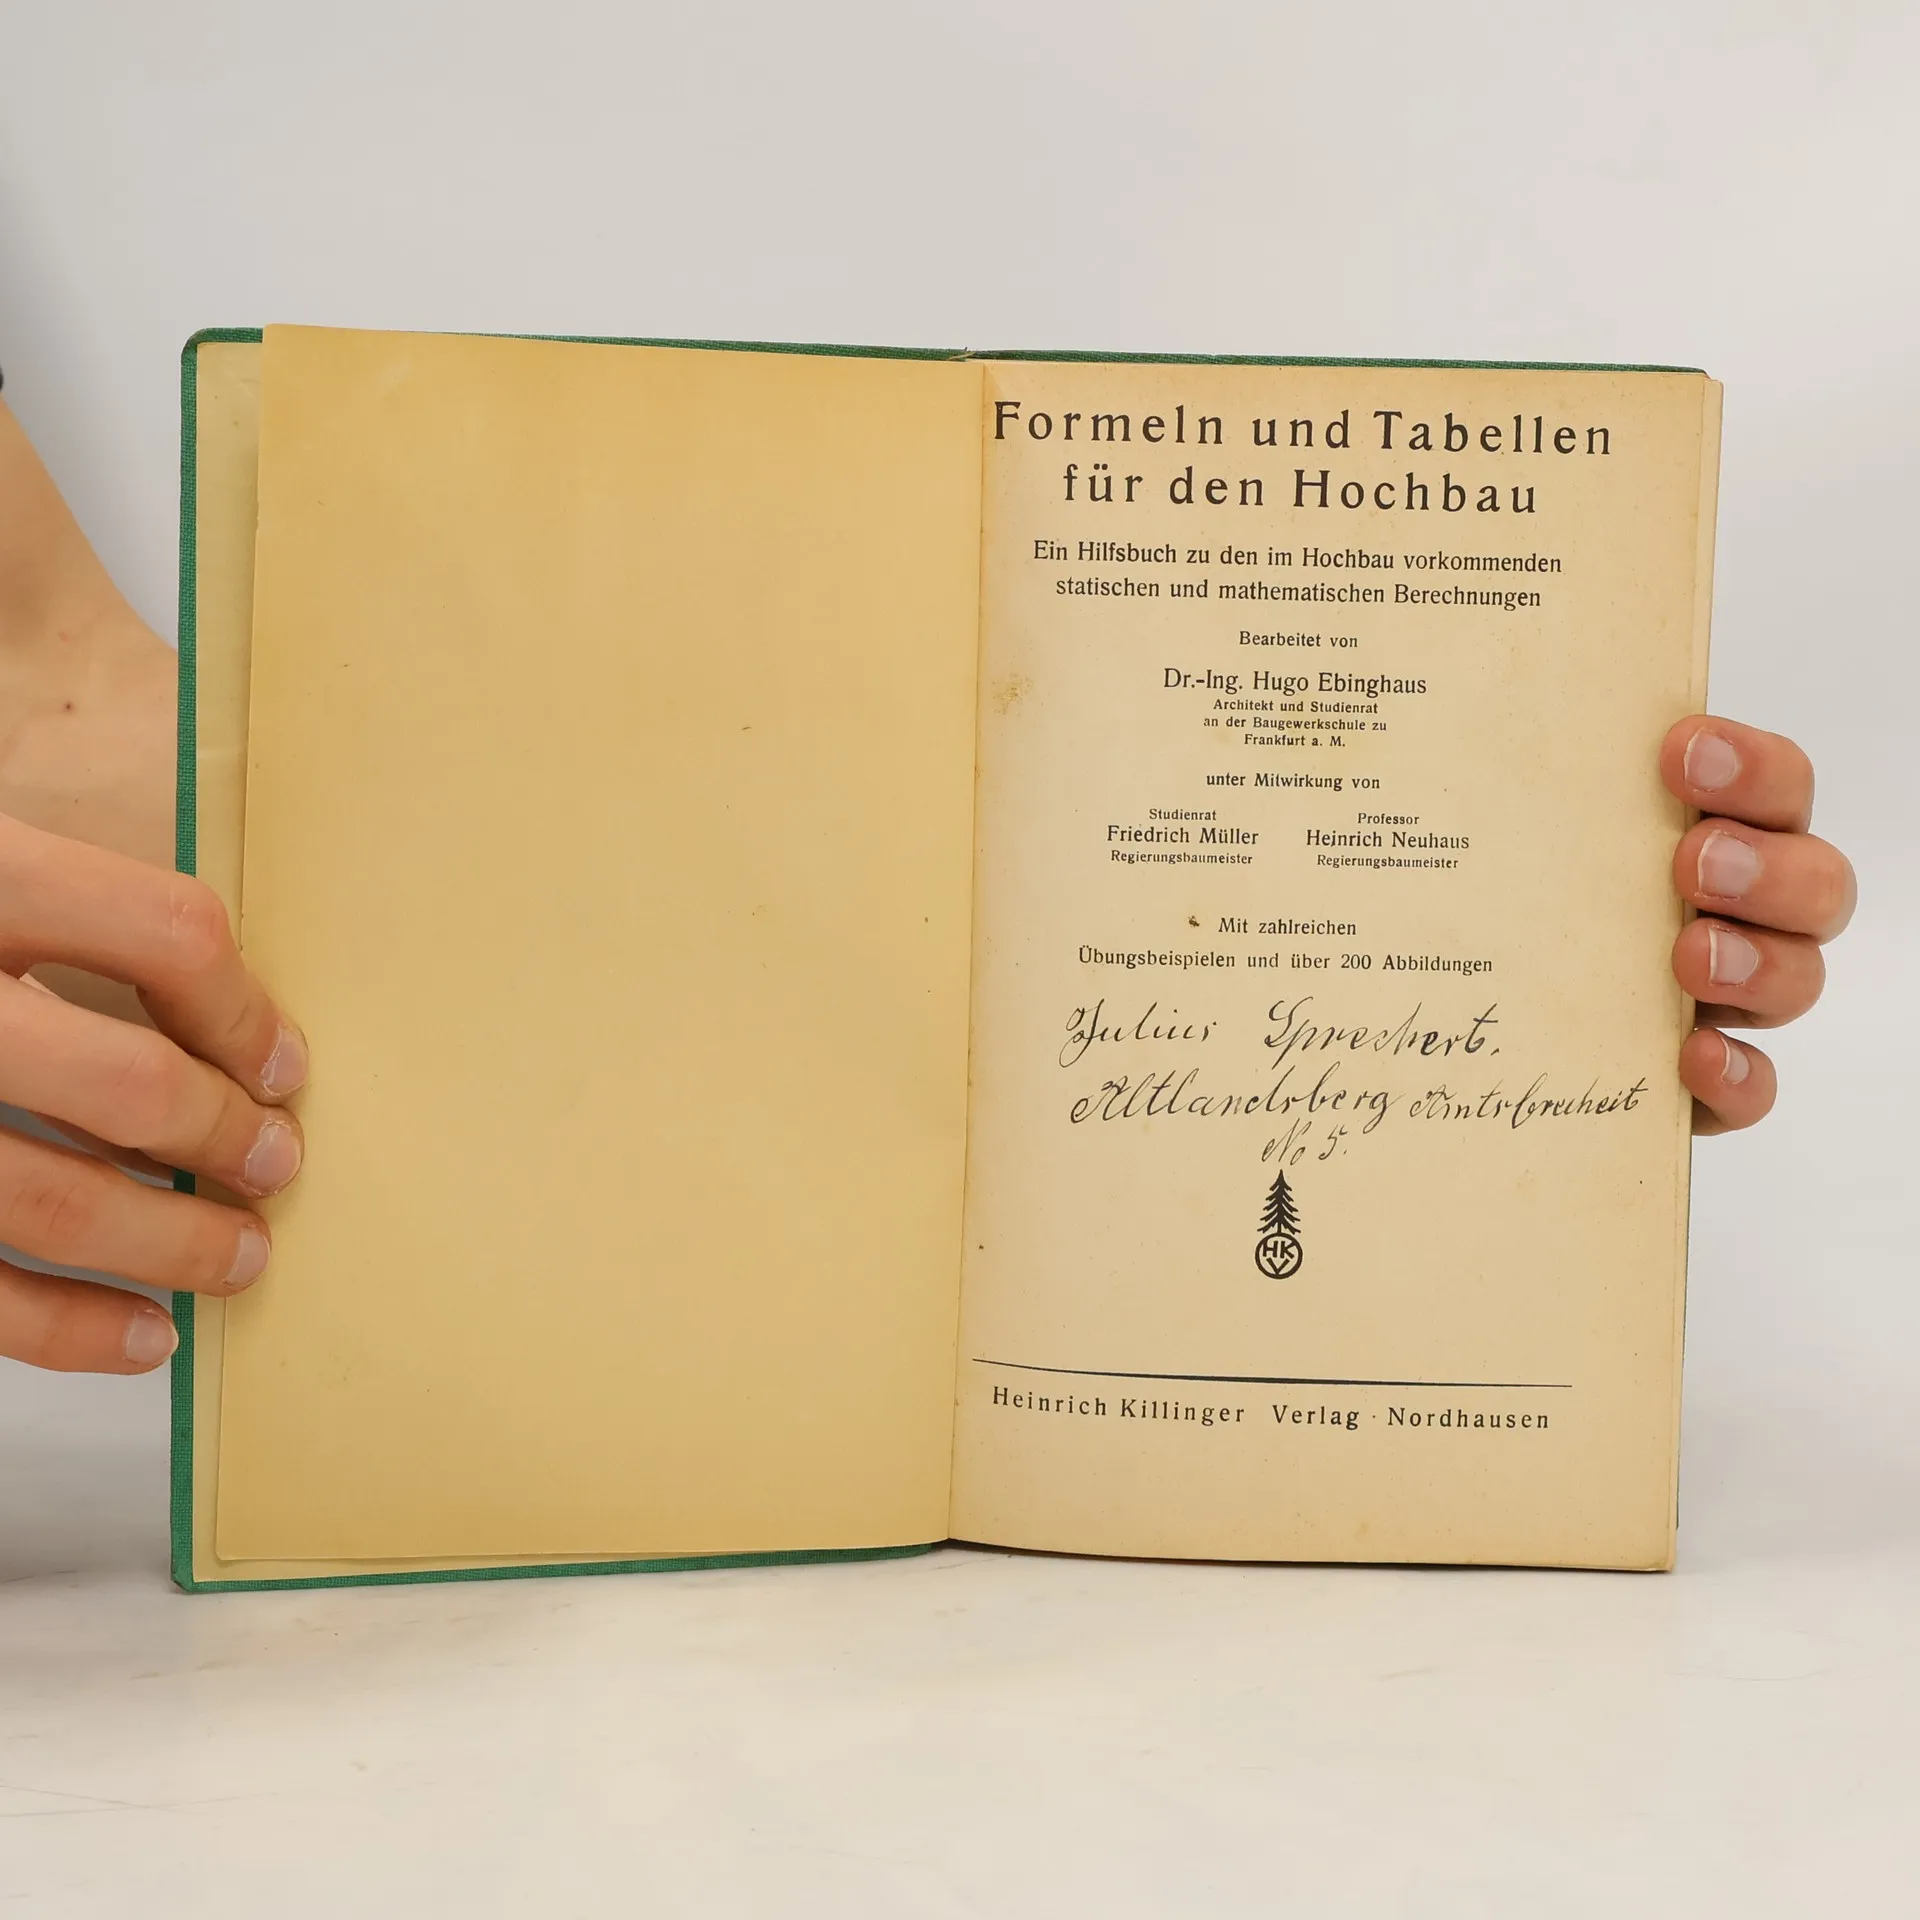 Formeln und Tabellen
für den Hochbau
Ein Hilfsbuch zu den im Hochbau vorkommenden
statischen und mathematischen Berechnungen
Bearbeitet von
Dr.-Ing. Hugo Ebinghaus
Architekt und Studienrat
an der Baugewerkschule zu
Frankfurt a. M.
unter Mitwirkung von
Studienrat
Friedrich Müller
Regierungsbaumeister
Professor
Heinrich Neuhaus
Regierungsbaumeister
Mit zahlreichen
Übungsbeispielen und über 200 Abbildungen
Julius
Altlandsberg Amtsfreiheit
No 5.
HKV
Heinrich Killinger Verlag · Nordhausen